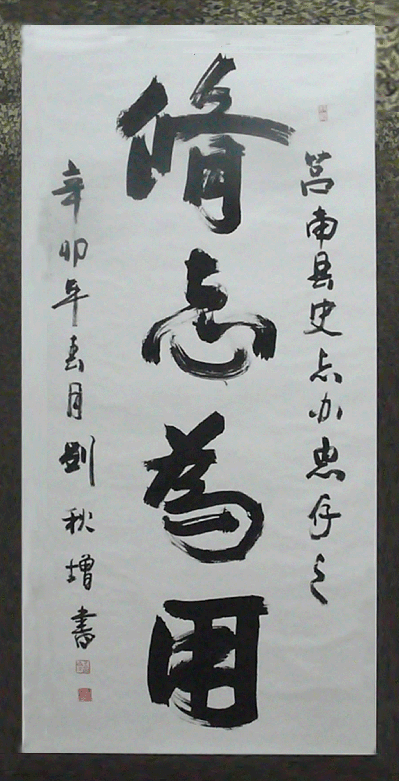 莒南县史志办惠存之
修志為用
辛卯年春月刘秋增書